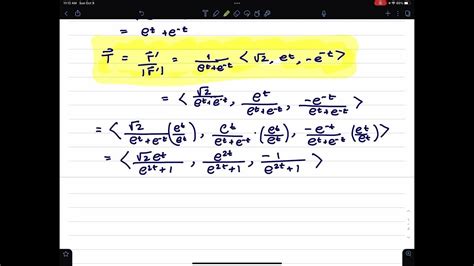 11:15 AM Sun Oct 8
= e^t + e^-t
T⃗ = r⃗'/|r⃗'| = 1/(e^t+e^-t) <√2, e^t, -e^-t>
= <√2/(e^t+e^-t), e^t/(e^t+e^-t), -e^-t/(e^t+e^-t)>
= <√2/(e^t+e^-t) (e^t/e^t), e^t/(e^t+e^-t) · (e^t/e^t), -e^-t/(e^t+e^-t) (e^t/e^t)>
= <√2 e^t/(e^2t+1), e^2t/(e^2t+1), -1/(e^2t+1)>